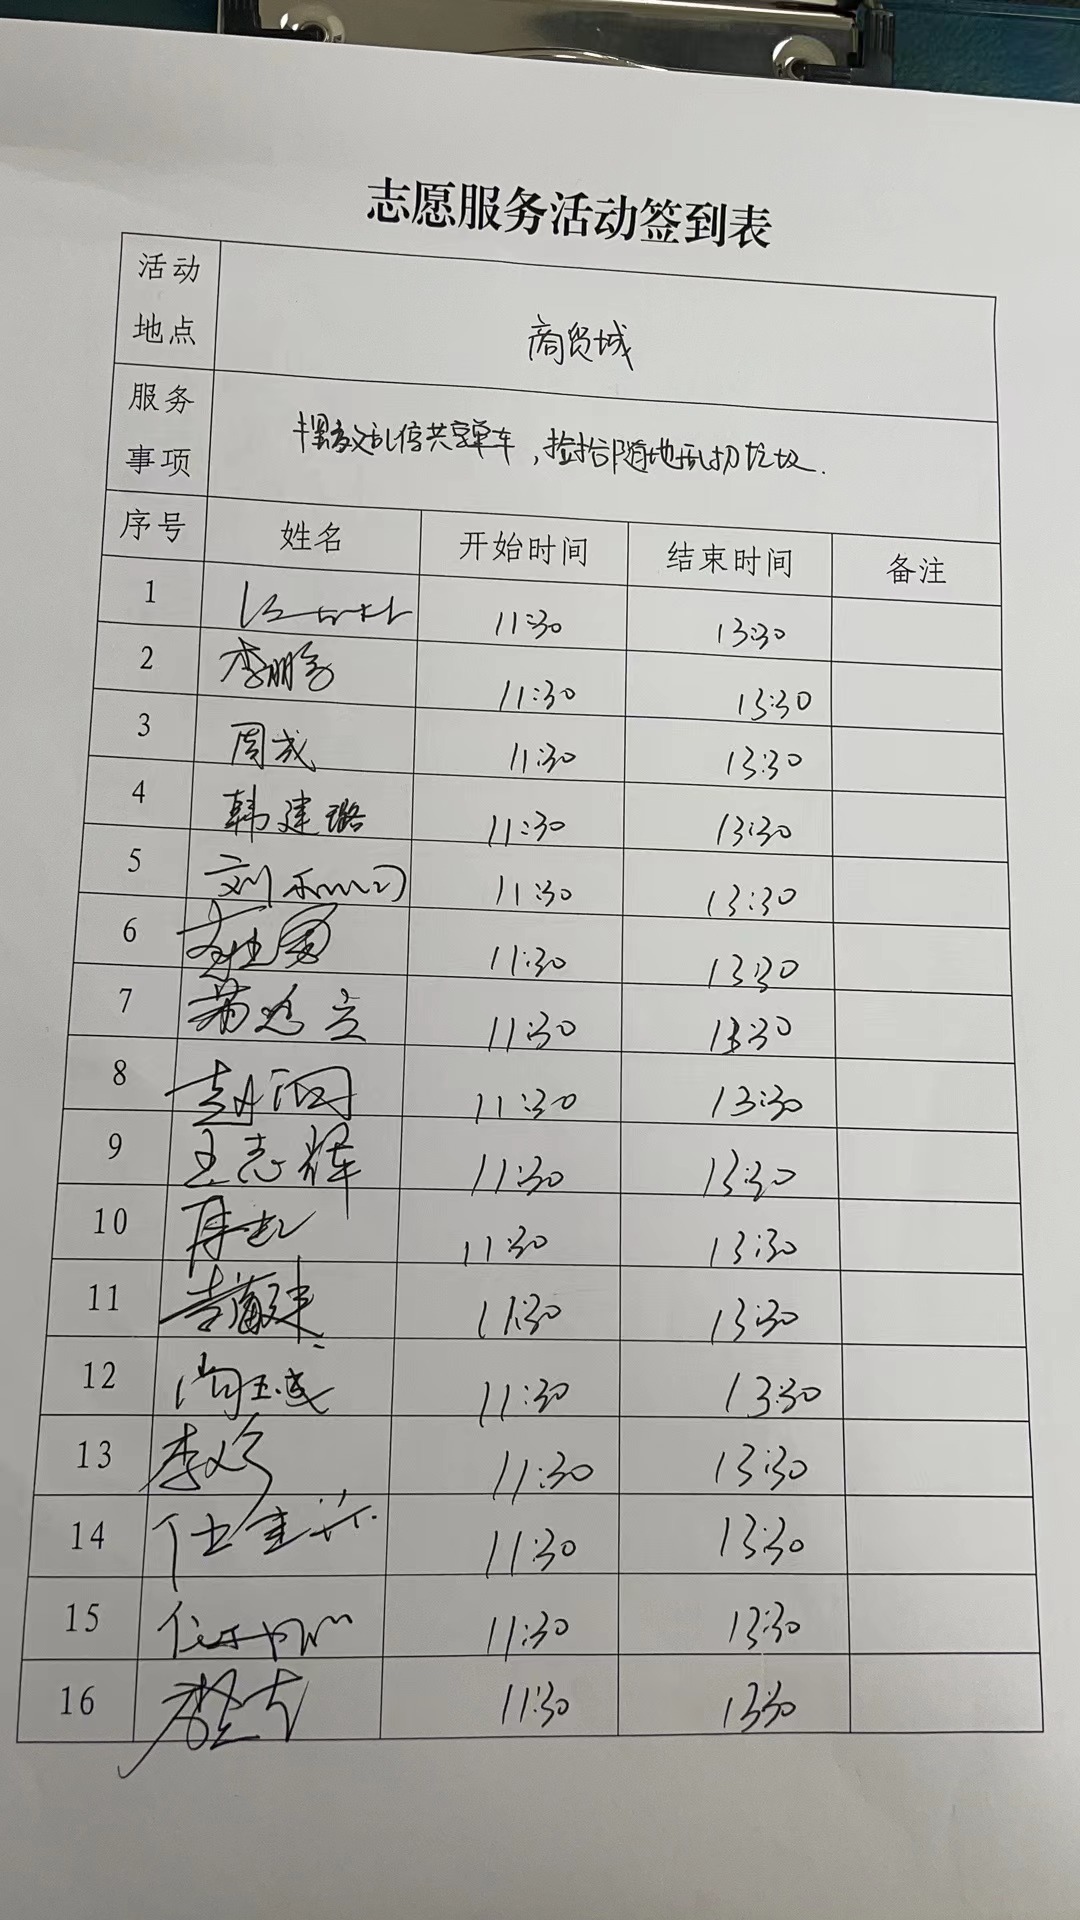 志愿服务活动签到表
活动地点 商贸城
服务事项 摆放乱停共享单车，捡拾随地乱扔垃圾.
序号 姓名 开始时间 结束时间 备注
1 11:30 13:30
2 李鹏 11:30 13:30
3 周成 11:30 13:30
4 韩建璐 11:30 13:30
5 刘 11:30 13:30
6 11:30 13:30
7 11:30 13:30
8 赵 11:30 13:30
9 王志辉 11:30 13:30
10 11:30 13:30
11 11:30 13:30
12 尚玉成 11:30 13:30
13 李 11:30 13:30
14 任 11:30 13:30
15 任 11:30 13:30
16 李 11:30 13:30